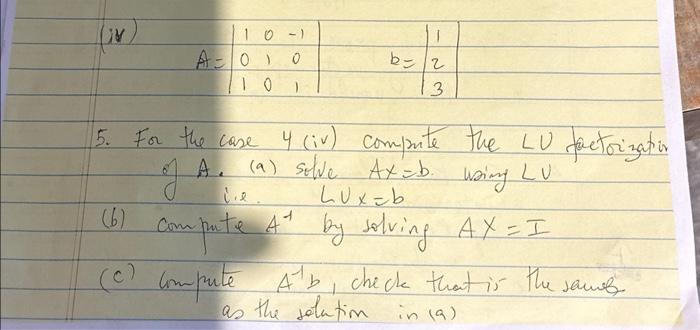 (iv)
A = | 1 0 -1 | b = | 1 |
| 0 1 0 | | 2 |
| 1 0 1 | | 3 |
5. For the case 4 (iv) compute the LU factorization
of A. (a) solve Ax=b. using LU
i.e. LUx=b
(b) compute A⁻¹ by solving AX = I
(c) compute A⁻¹b, check that is the same
as the solution in (a)